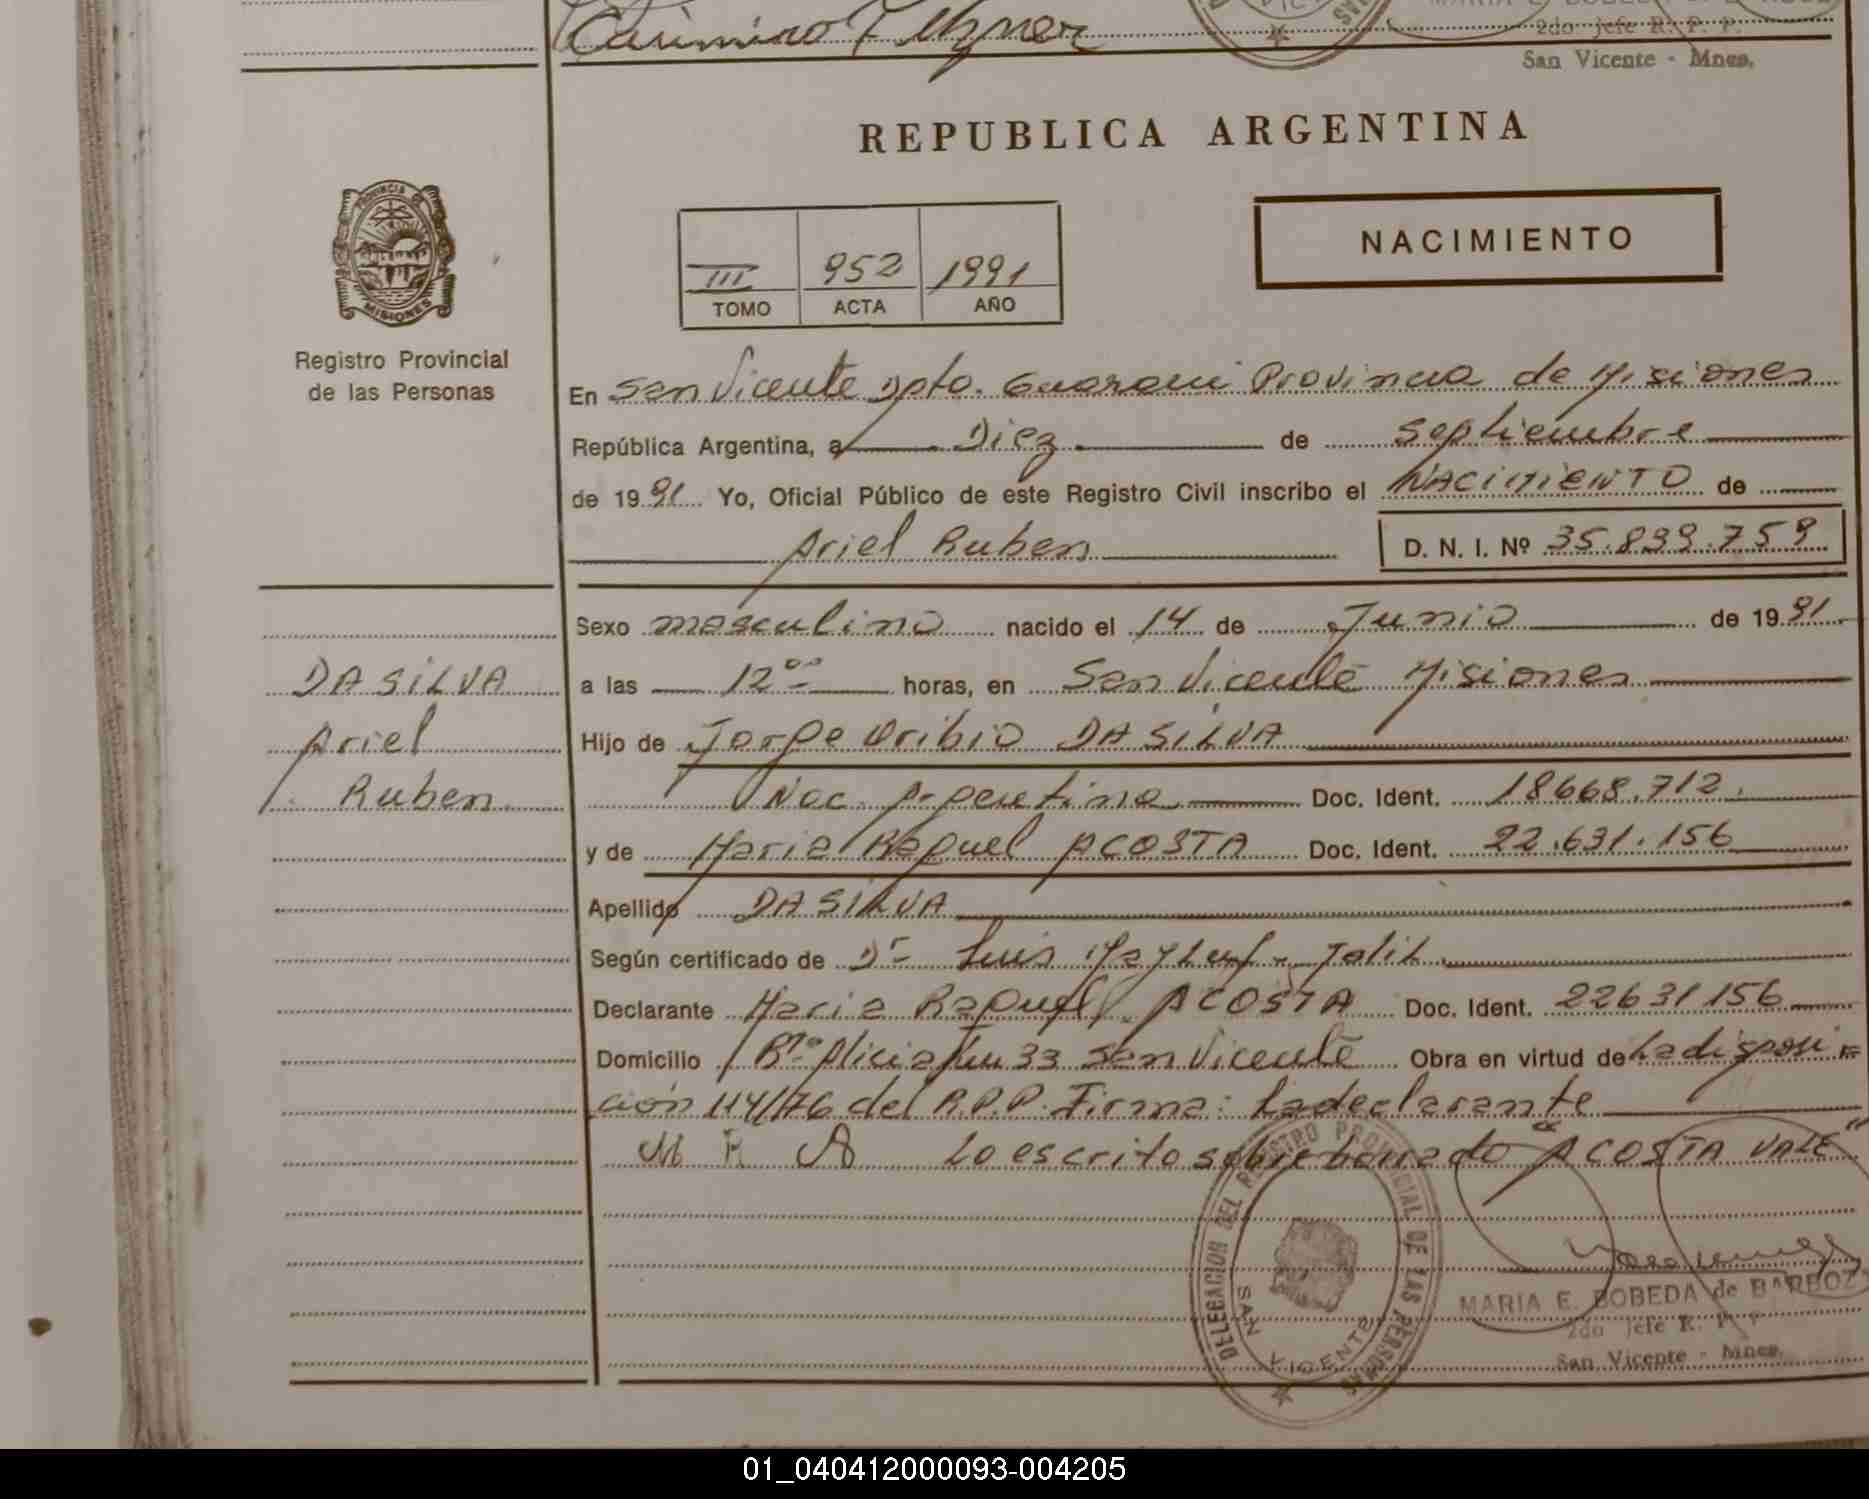 Casimiro
MARIA E. BOBEDA de BARBOZA
2do Jefe R. P. P.
San Vicente - Mnes.
REPUBLICA ARGENTINA
PROVINCIA
MISIONES
III 952 1991
TOMO ACTA AÑO
NACIMIENTO
Registro Provincial
de las Personas
En San Vicente Dpto. Guarani Provincia de Misiones
República Argentina, a Diez de Septiembre
de 1991 Yo, Oficial Público de este Registro Civil inscribo el NACIMIENTO de
Ariel Ruben D. N. I. Nº 35.899.759
Sexo masculino nacido el 14 de Junio de 1991
DA SILVA
Ariel
Ruben
a las 12ºº horas, en San Vicente Misiones
Hijo de Jorge Oribio DA SILVA
Nac. Argentina Doc. Ident. 18668.712.
y de Maria Raquel ACOSTA Doc. Ident. 22.631.156
Apellido DA SILVA
Según certificado de Dr Luis Jalil
Declarante Maria Raquel ACOSTA Doc. Ident. 22631156
Domicilio Bº Alicia Km 33 San Vicente Obra en virtud de La disposi=
ción 114/76 del R.P.P. Firma: La declarante
M R A Lo escrito sobre borrado "ACOSTA VALE"
DELEGACION DEL REGISTRO PROVINCIAL DE LAS PERSONAS
SAN VICENTE
MARIA E. BOBEDA de BARBOZA
2do Jefe R. P. P.
San Vicente - Mnes.
01_040412000093-004205